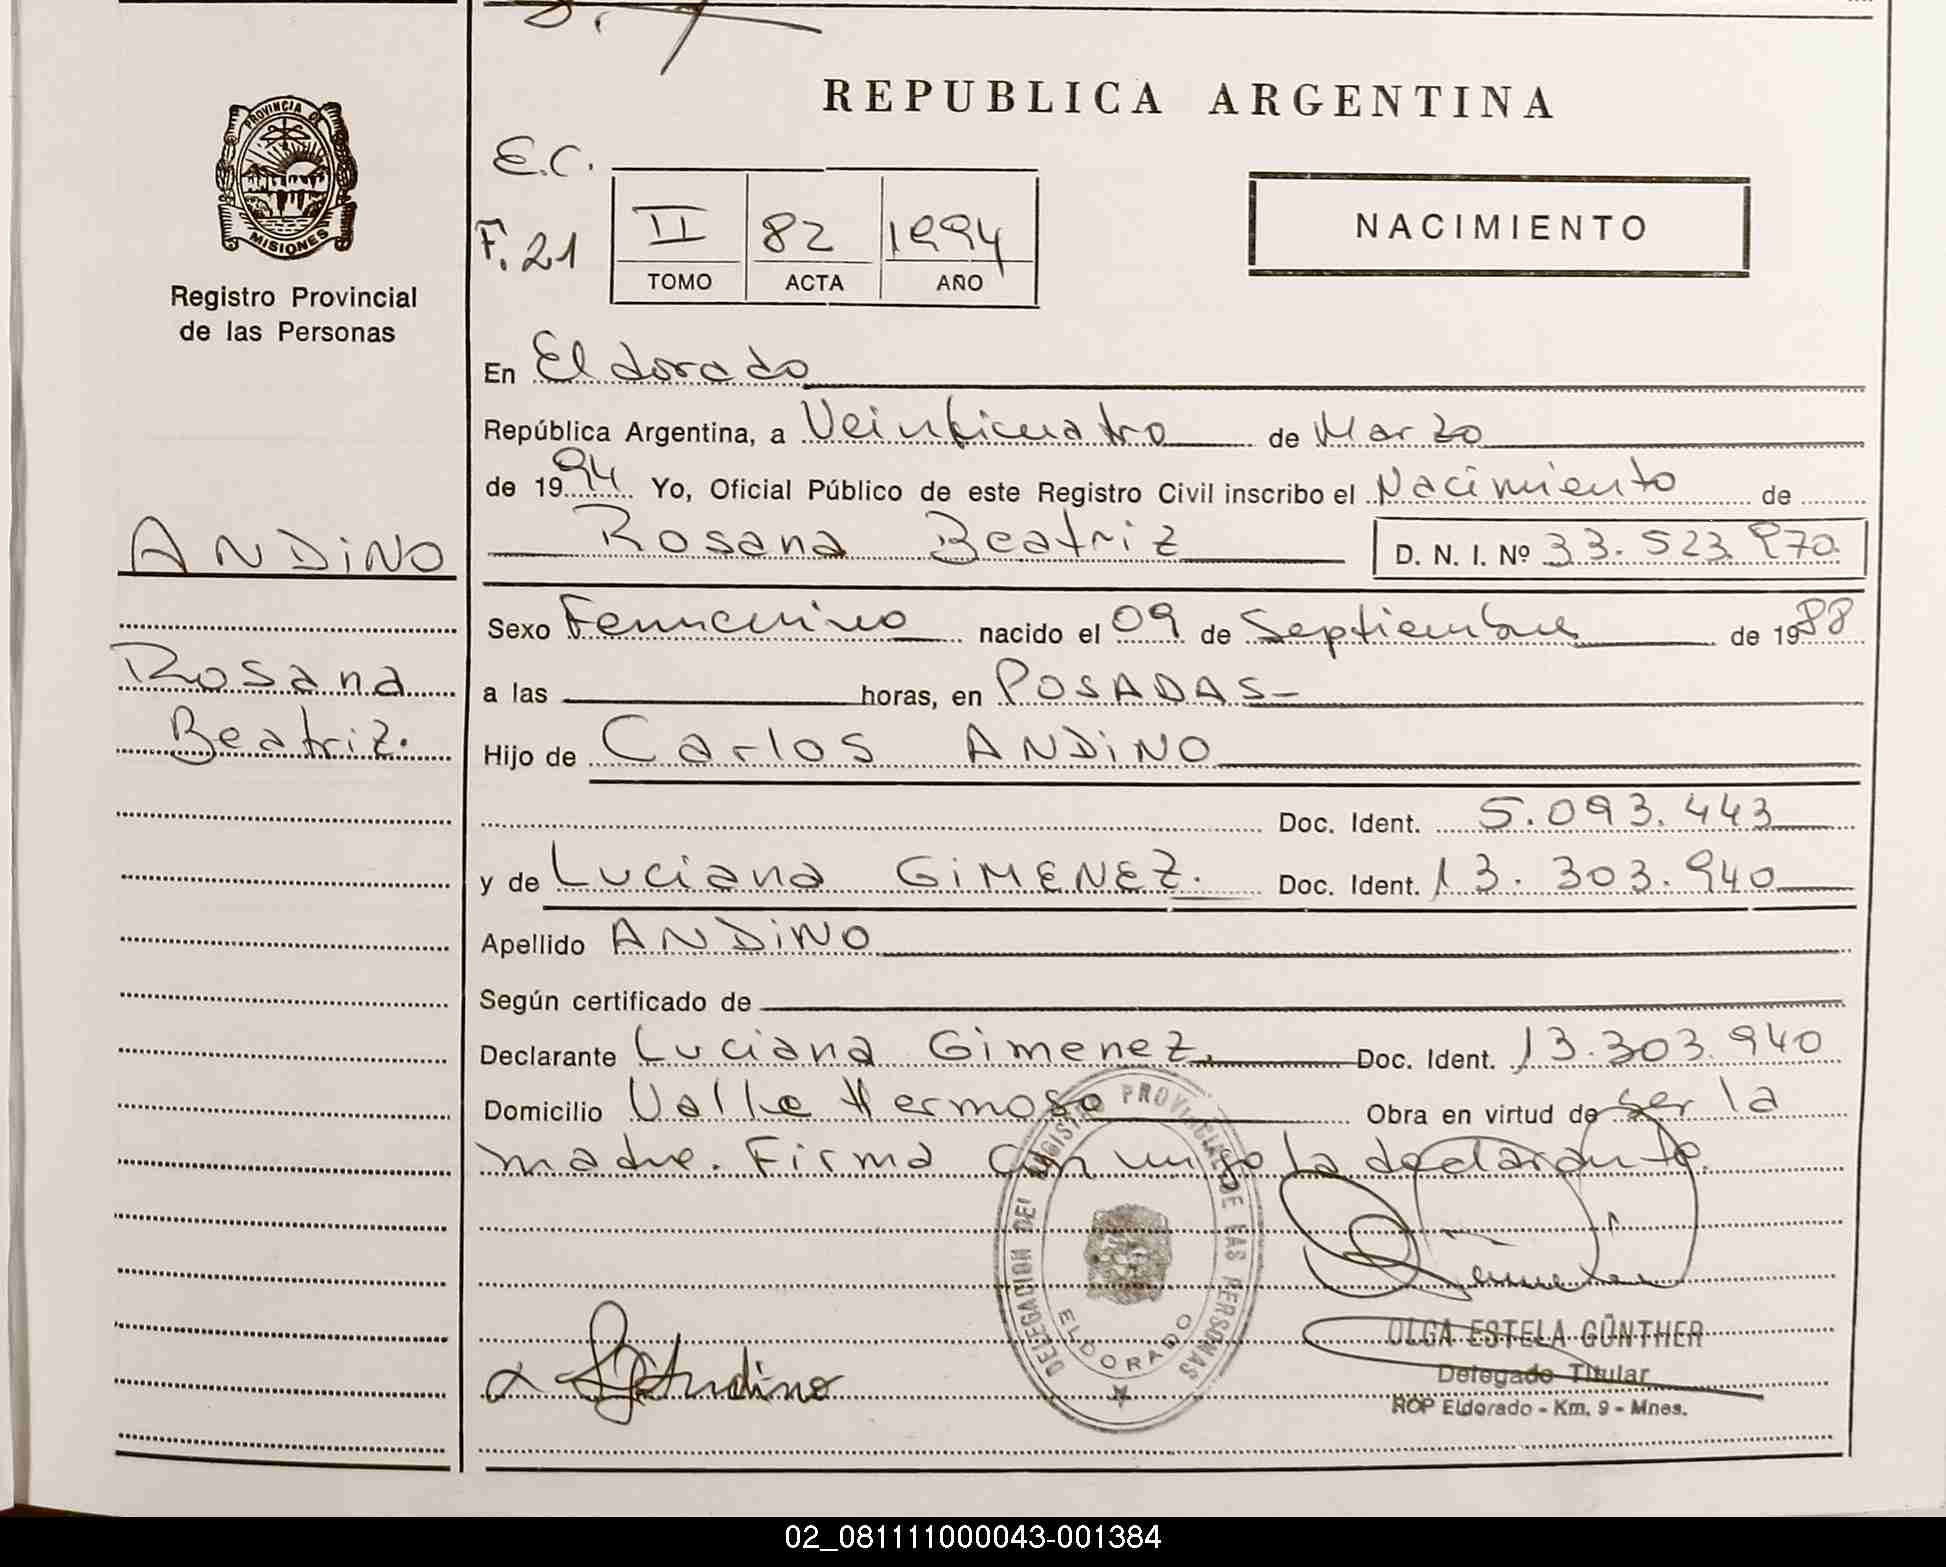 PROVINCIA DE
MISIONES
Registro Provincial
de las Personas
ANDINO
Rosana
Beatriz.
REPUBLICA ARGENTINA
E.C.
F. 21
II 82 1994
TOMO ACTA AÑO
NACIMIENTO
En Eldorado
República Argentina, a Veinticuatro de Marzo
de 1994 Yo, Oficial Público de este Registro Civil inscribo el Nacimiento de
Rosana Beatriz D. N. I. Nº 33.523.970.
Sexo Femenino nacido el 09 de Septiembre de 1988
a las horas, en POSADAS-
Hijo de Carlos ANDINO
Doc. Ident. 5.093.443
y de Luciana GIMENEZ. Doc. Ident. 13.303.940
Apellido ANDINO
Según certificado de
Declarante Luciana Gimenez. Doc. Ident. 13.303.940
Domicilio Valle Hermoso Obra en virtud de ser la
madre. Firma conmigo la declarante.
DELEGACION DEL REGISTRO PROVINCIAL DE LAS PERSONAS
ELDORADO
OLGA ESTELA GÜNTHER
Delegado Titular
RCP Eldorado - Km. 9 - Mnes.
Andino
02_081111000043-001384